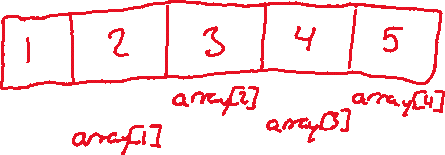 1 2 3 4 5
array[2] array[4]
array[1] array[3]